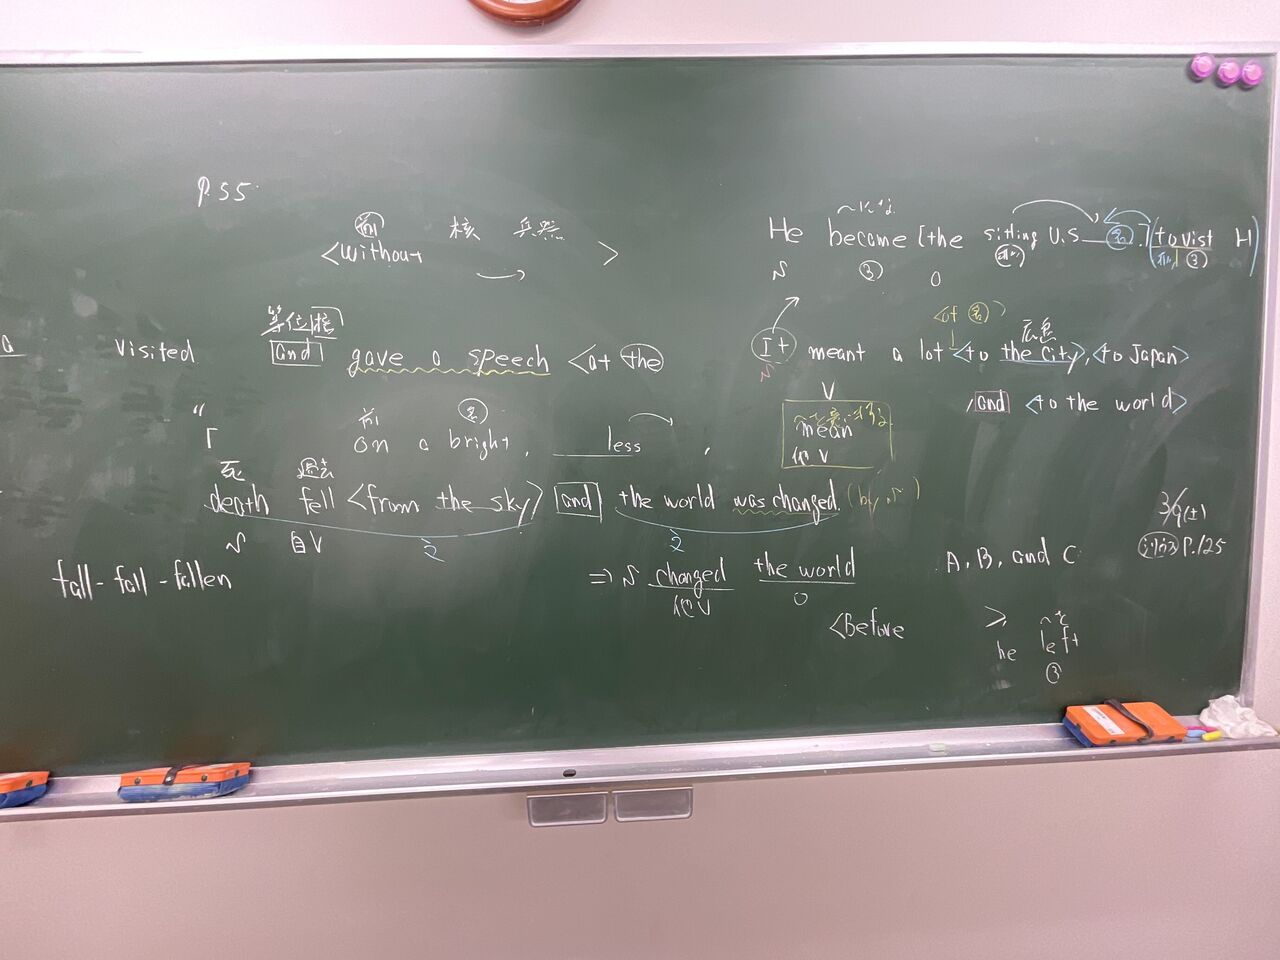 P.55
前 核 兵器
<without >
等位接
a visited and gave a speech <at the
"
「 前 名
on a bright, less ,
死 過去
death fell <from the sky> and the world was changed. (by s)
S 自V 2 2
fall - fall - fallen
⇒ S changed the world
他V O
~になる
He became [the sitting U.S. 名.] (to visit H)
S O
<of 名>
広島
It meant a lot <to the city>, <to Japan>
S V
, and <to the world>
mean
他V
A, B, and C
<Before >,
~を
he left
P.125